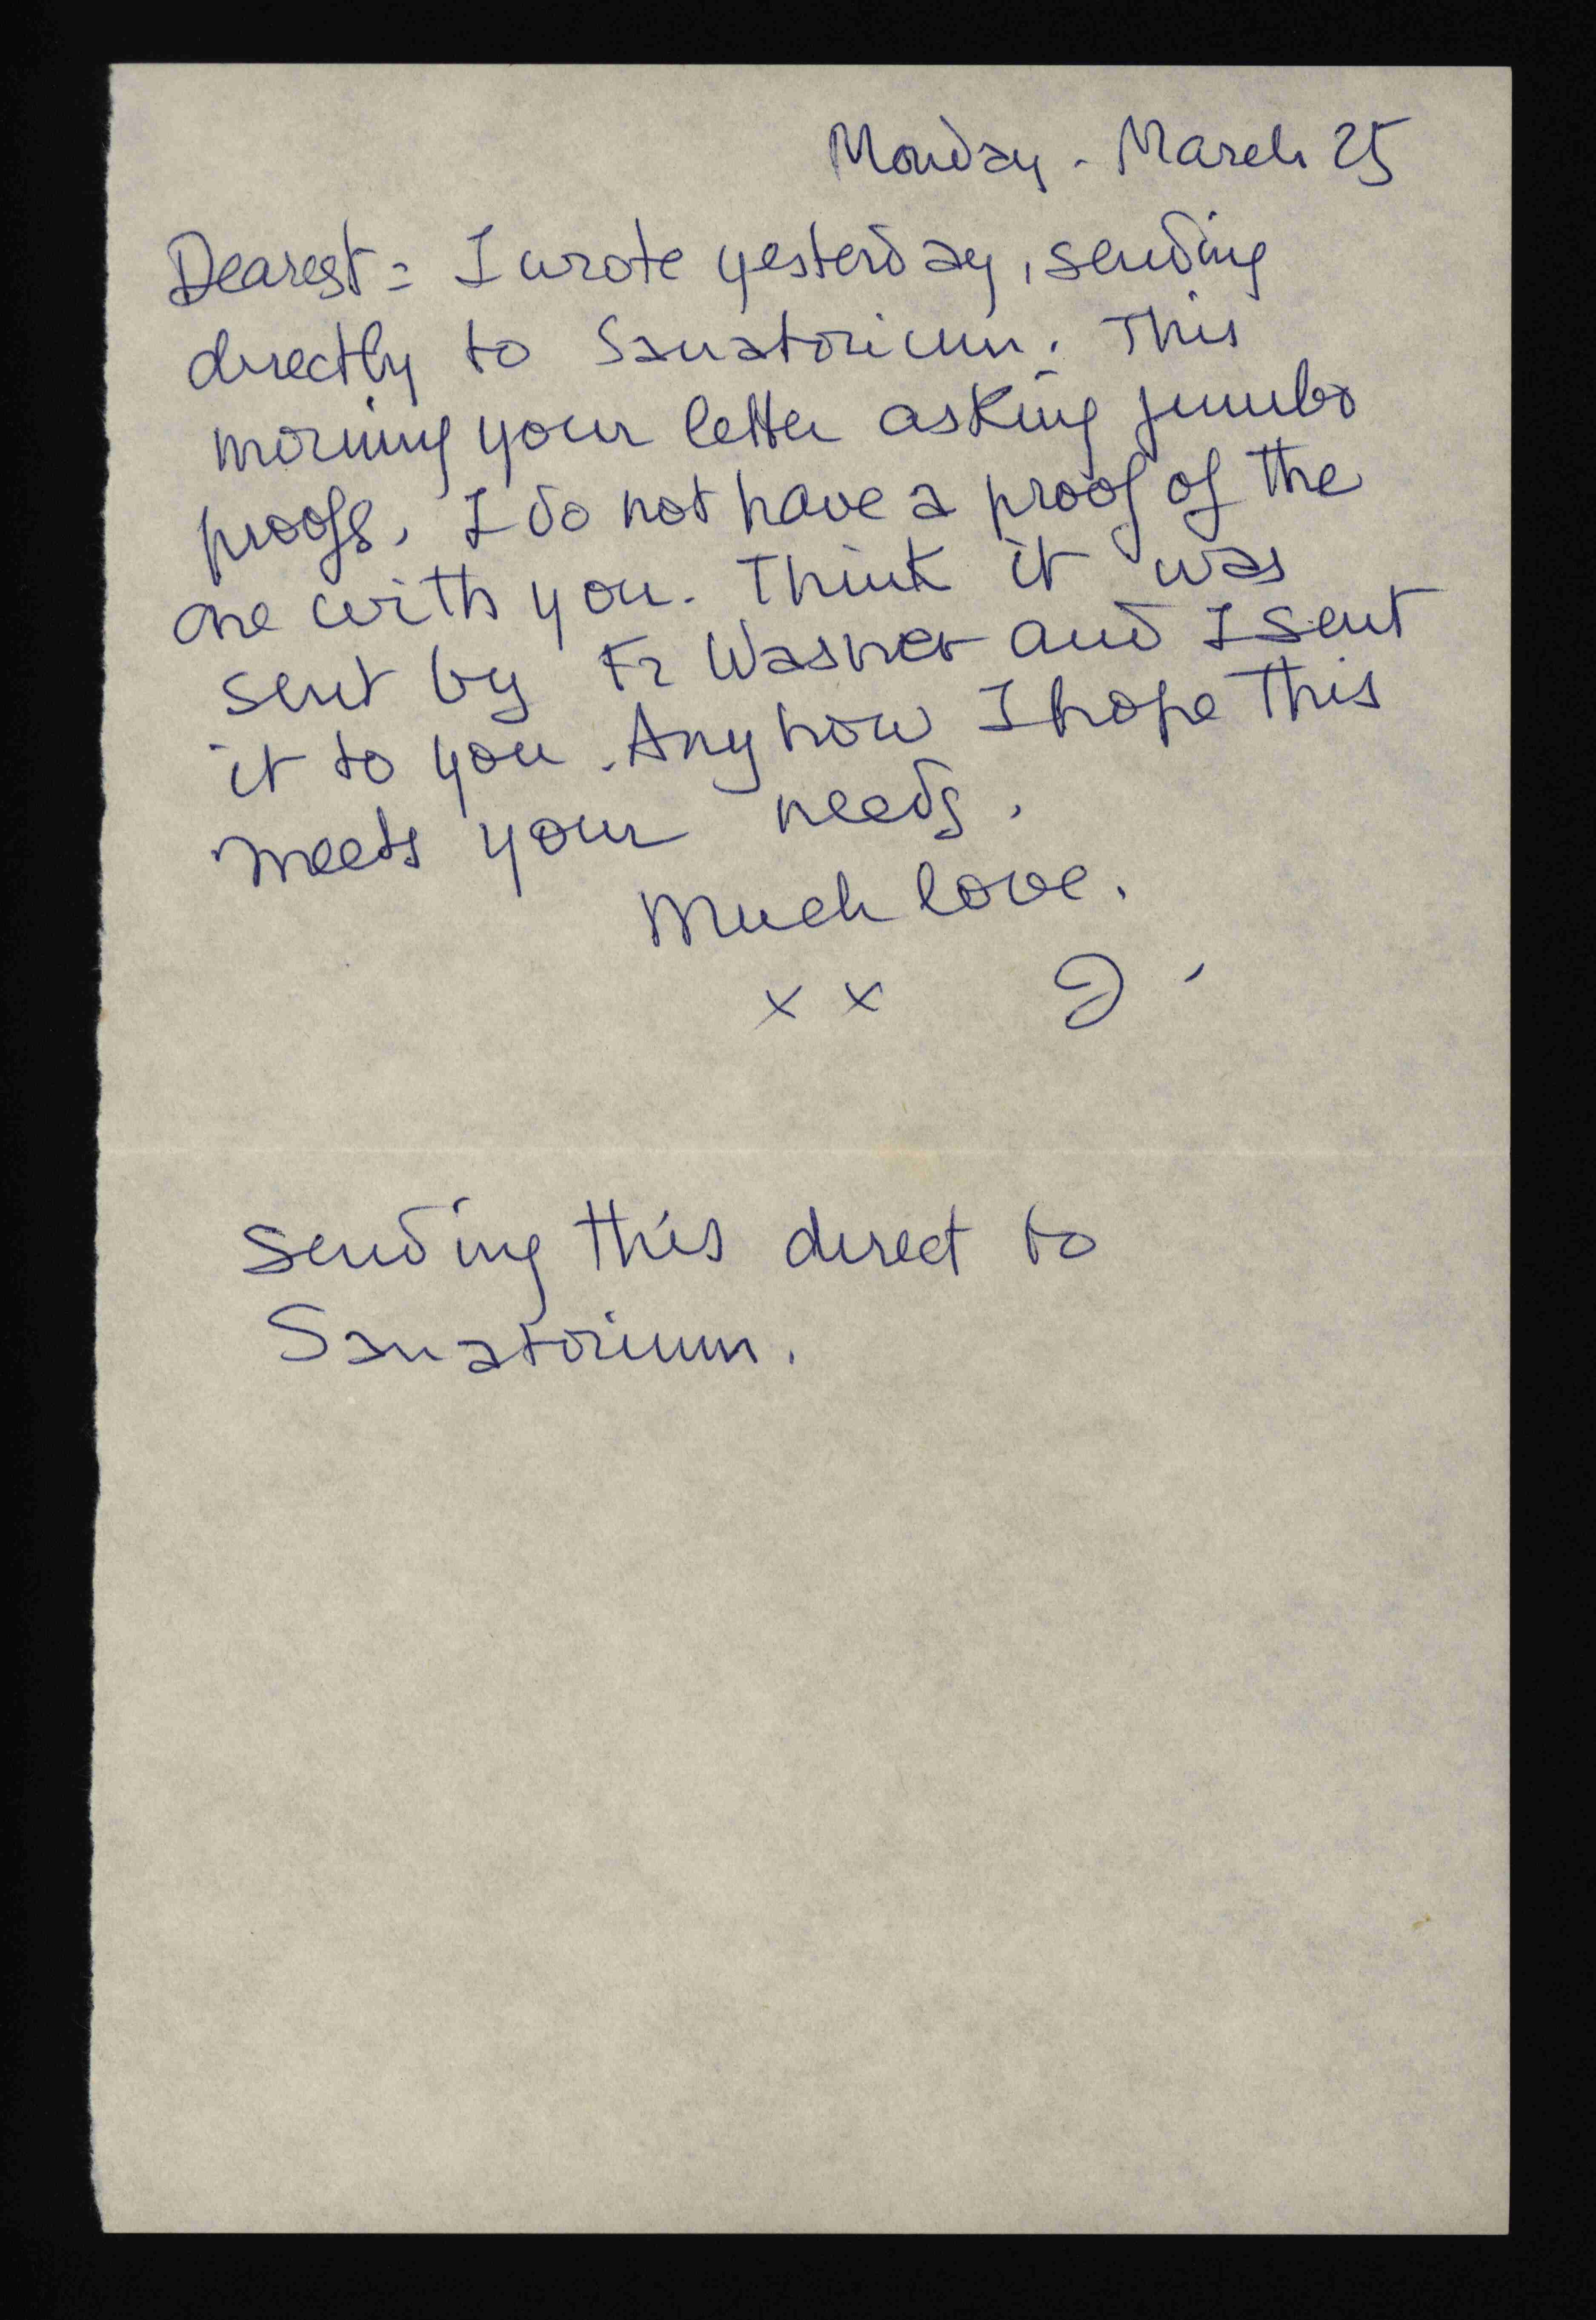 Monday - March 25
Dearest = I wrote yesterday, sending
directly to Sanatorium. This
morning your letter asking jumbo
proofs. I do not have a proof of the
one with you. Think it was
sent by Fr Wasner and I sent
it to you. Anyhow I hope this
meets your needs.
Much love.
x x J -
Sending this direct to
Sanatorium.